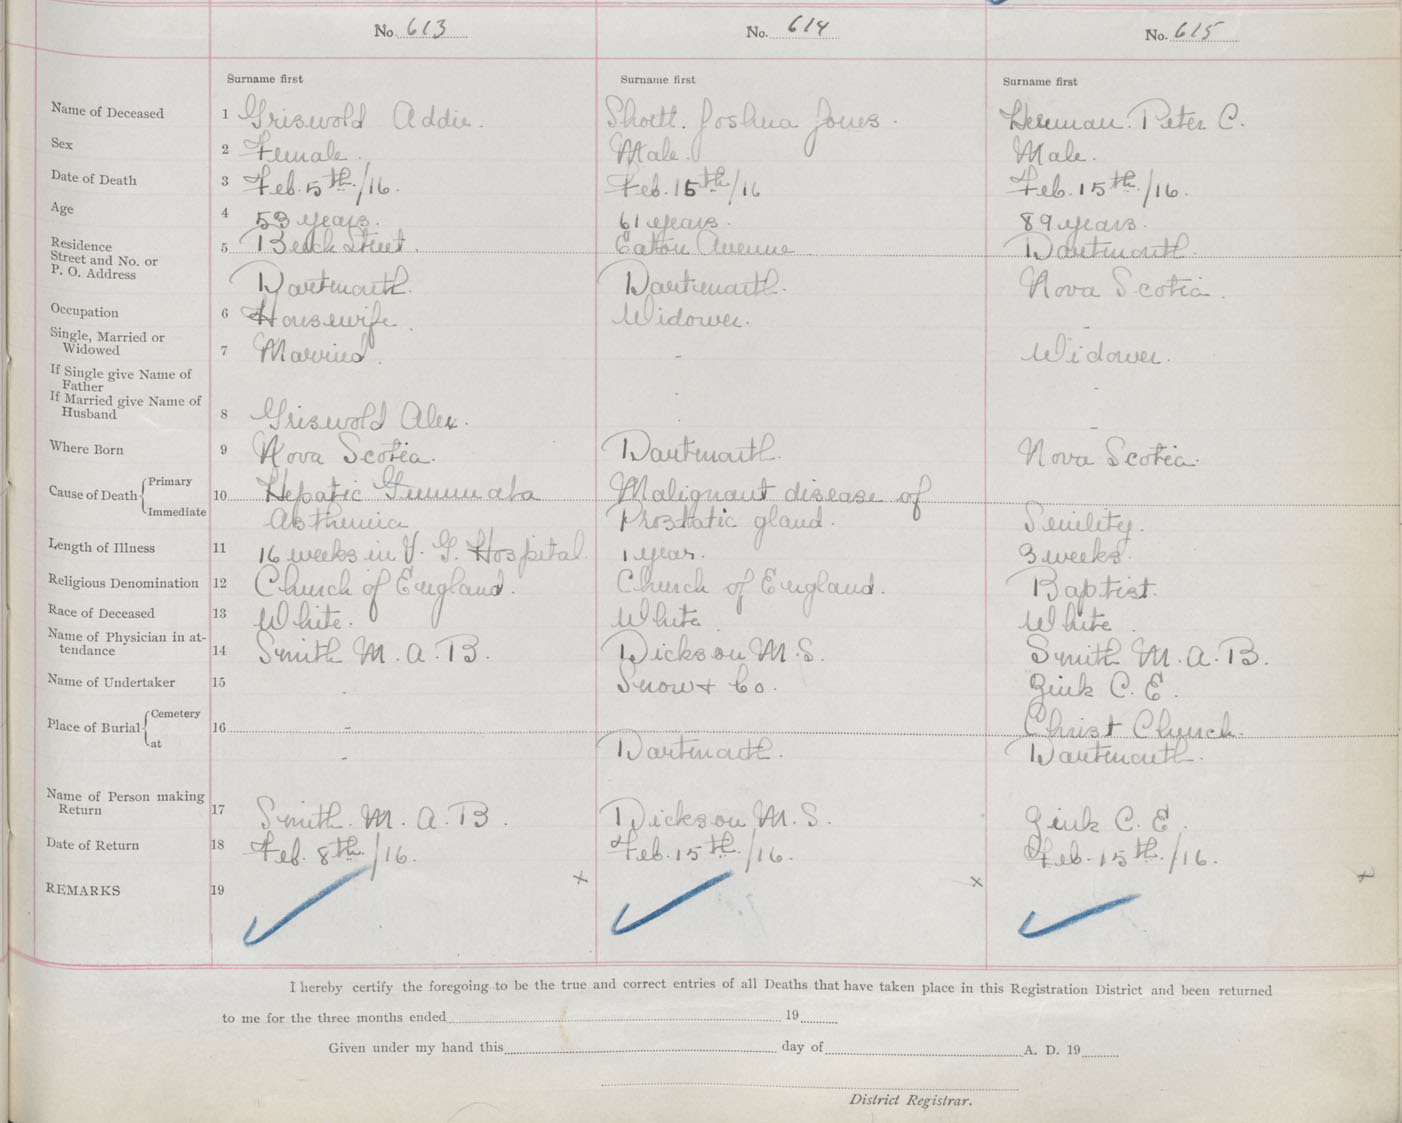 No. 613 No. 614 No. 615
Surname first Surname first Surname first
Name of Deceased 1 Griswold Addie. Shortt. Joshua Jones. Herman. Peter C.
Sex 2 Female. Male. Male.
Date of Death 3 Feb. 5th/16. Feb. 15th/16 Feb. 15th/16.
Age 4 53 years. 61 years. 89 years.
Residence 5 Beech Street. Eaton Avenue Dartmouth.
Street and No. or
P. O. Address Dartmouth. Dartmouth. Nova Scotia.
Occupation 6 Housewife. Widower. -
Single, Married or
Widowed 7 Married. - Widower.
If Single give Name of
Father -
If Married give Name of
Husband 8 Griswold Alex. -
Where Born 9 Nova Scotia. Dartmouth. Nova Scotia.
Cause of Death Primary 10 Hepatic Gummata Malignant disease of
Immediate Asthenia Prostatic gland. Senility.
Length of Illness 11 16 weeks in V. G. Hospital. 1 year. 3 weeks.
Religious Denomination 12 Church of England. Church of England. Baptist.
Race of Deceased 13 White. White. White.
Name of Physician in at-
tendance 14 Smith M. A. B. Dickson M. S. Smith M. A. B.
Name of Undertaker 15 - Snow & Co. Zink C. E.
Place of Burial Cemetery 16 - Christ Church.
at - Dartmouth. Dartmouth.
Name of Person making
Return 17 Smith. M. A. B. Dickson M. S. Zink C. E.
Date of Return 18 Feb. 8th/16. Feb. 15th/16. Feb. 15th/16.
REMARKS 19 x x x
I hereby certify the foregoing to be the true and correct entries of all Deaths that have taken place in this Registration District and been returned
to me for the three months ended 19
Given under my hand this day of A. D. 19
District Registrar.